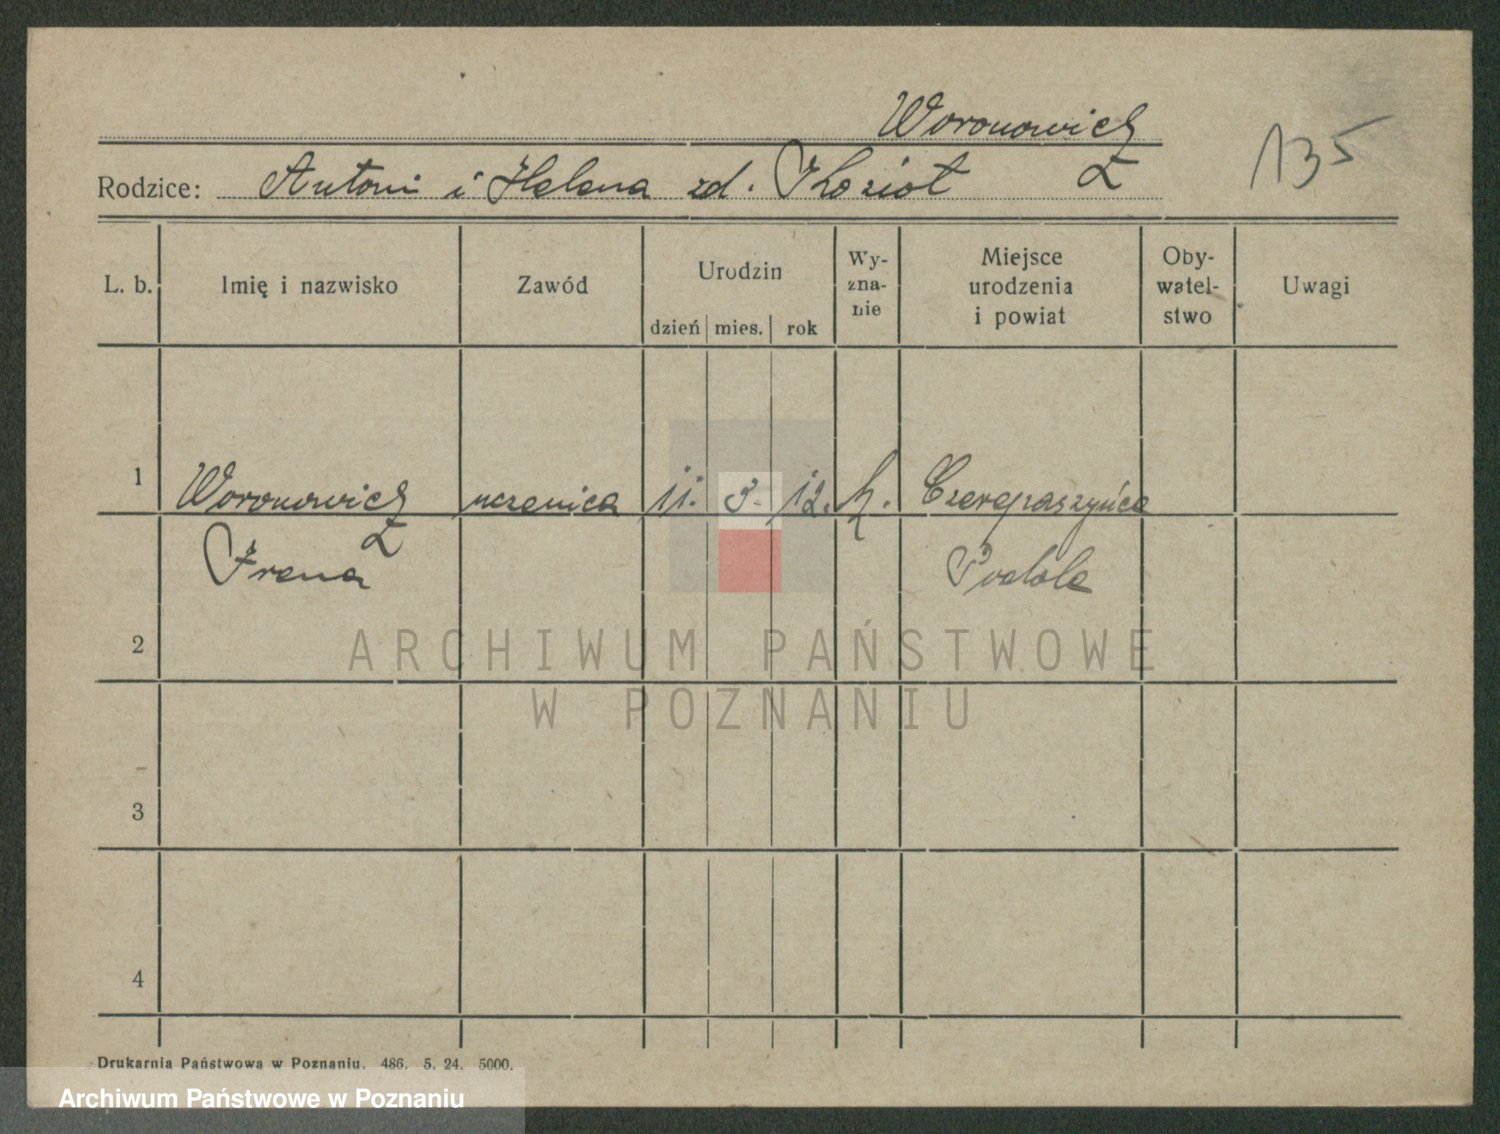 Woronowicz
135
Rodzice: Antoni i Helena zd. Kozioł
L. b.
Imię i nazwisko
Zawód
Urodzin
dzień mies. rok
Wy-
zna-
nie
Miejsce
urodzenia
i powiat
Oby-
watel-
stwo
Uwagi
1 Woronowicz uczenica 11. 3. 12. k. Czerepaszyńce
Irena Podole
2
3
4
ARCHIWUM PAŃSTWOWE
W POZNANIU
Drukarnia Państwowa w Poznaniu. 486. 5. 24. 5000.
Archiwum Państwowe w Poznaniu